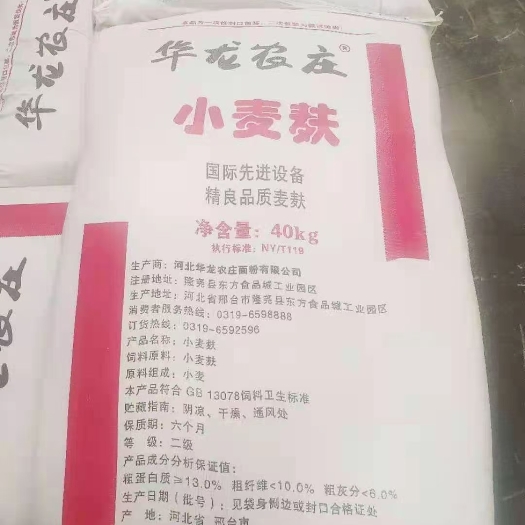 华龙农庄®
小麦麸
国际先进设备
精良品质麦麸
净含量：40kg
执行标准：NY/T119
生产商：河北华龙农庄面粉有限公司
注册地址：隆尧县东方食品城工业园区
生产地址：河北省邢台市隆尧县东方食品城工业园区
消费者服务热线：0319-6598888
订货热线：0319-6592596
产品名称：小麦麸
饲料原料：小麦麸
原料组成：小麦
本产品符合GB 13078饲料卫生标准
贮藏指南：阴凉、干燥、通风处
保质期：六个月
等 级：二级
产品成分分析保证值：
粗蛋白质≥13.0% 粗纤维<10.0% 粗灰分<6.0%
生产日期（批号）：见袋身侧边或封口合格证处
产 地：河北省 邢台市
华龙农
庄